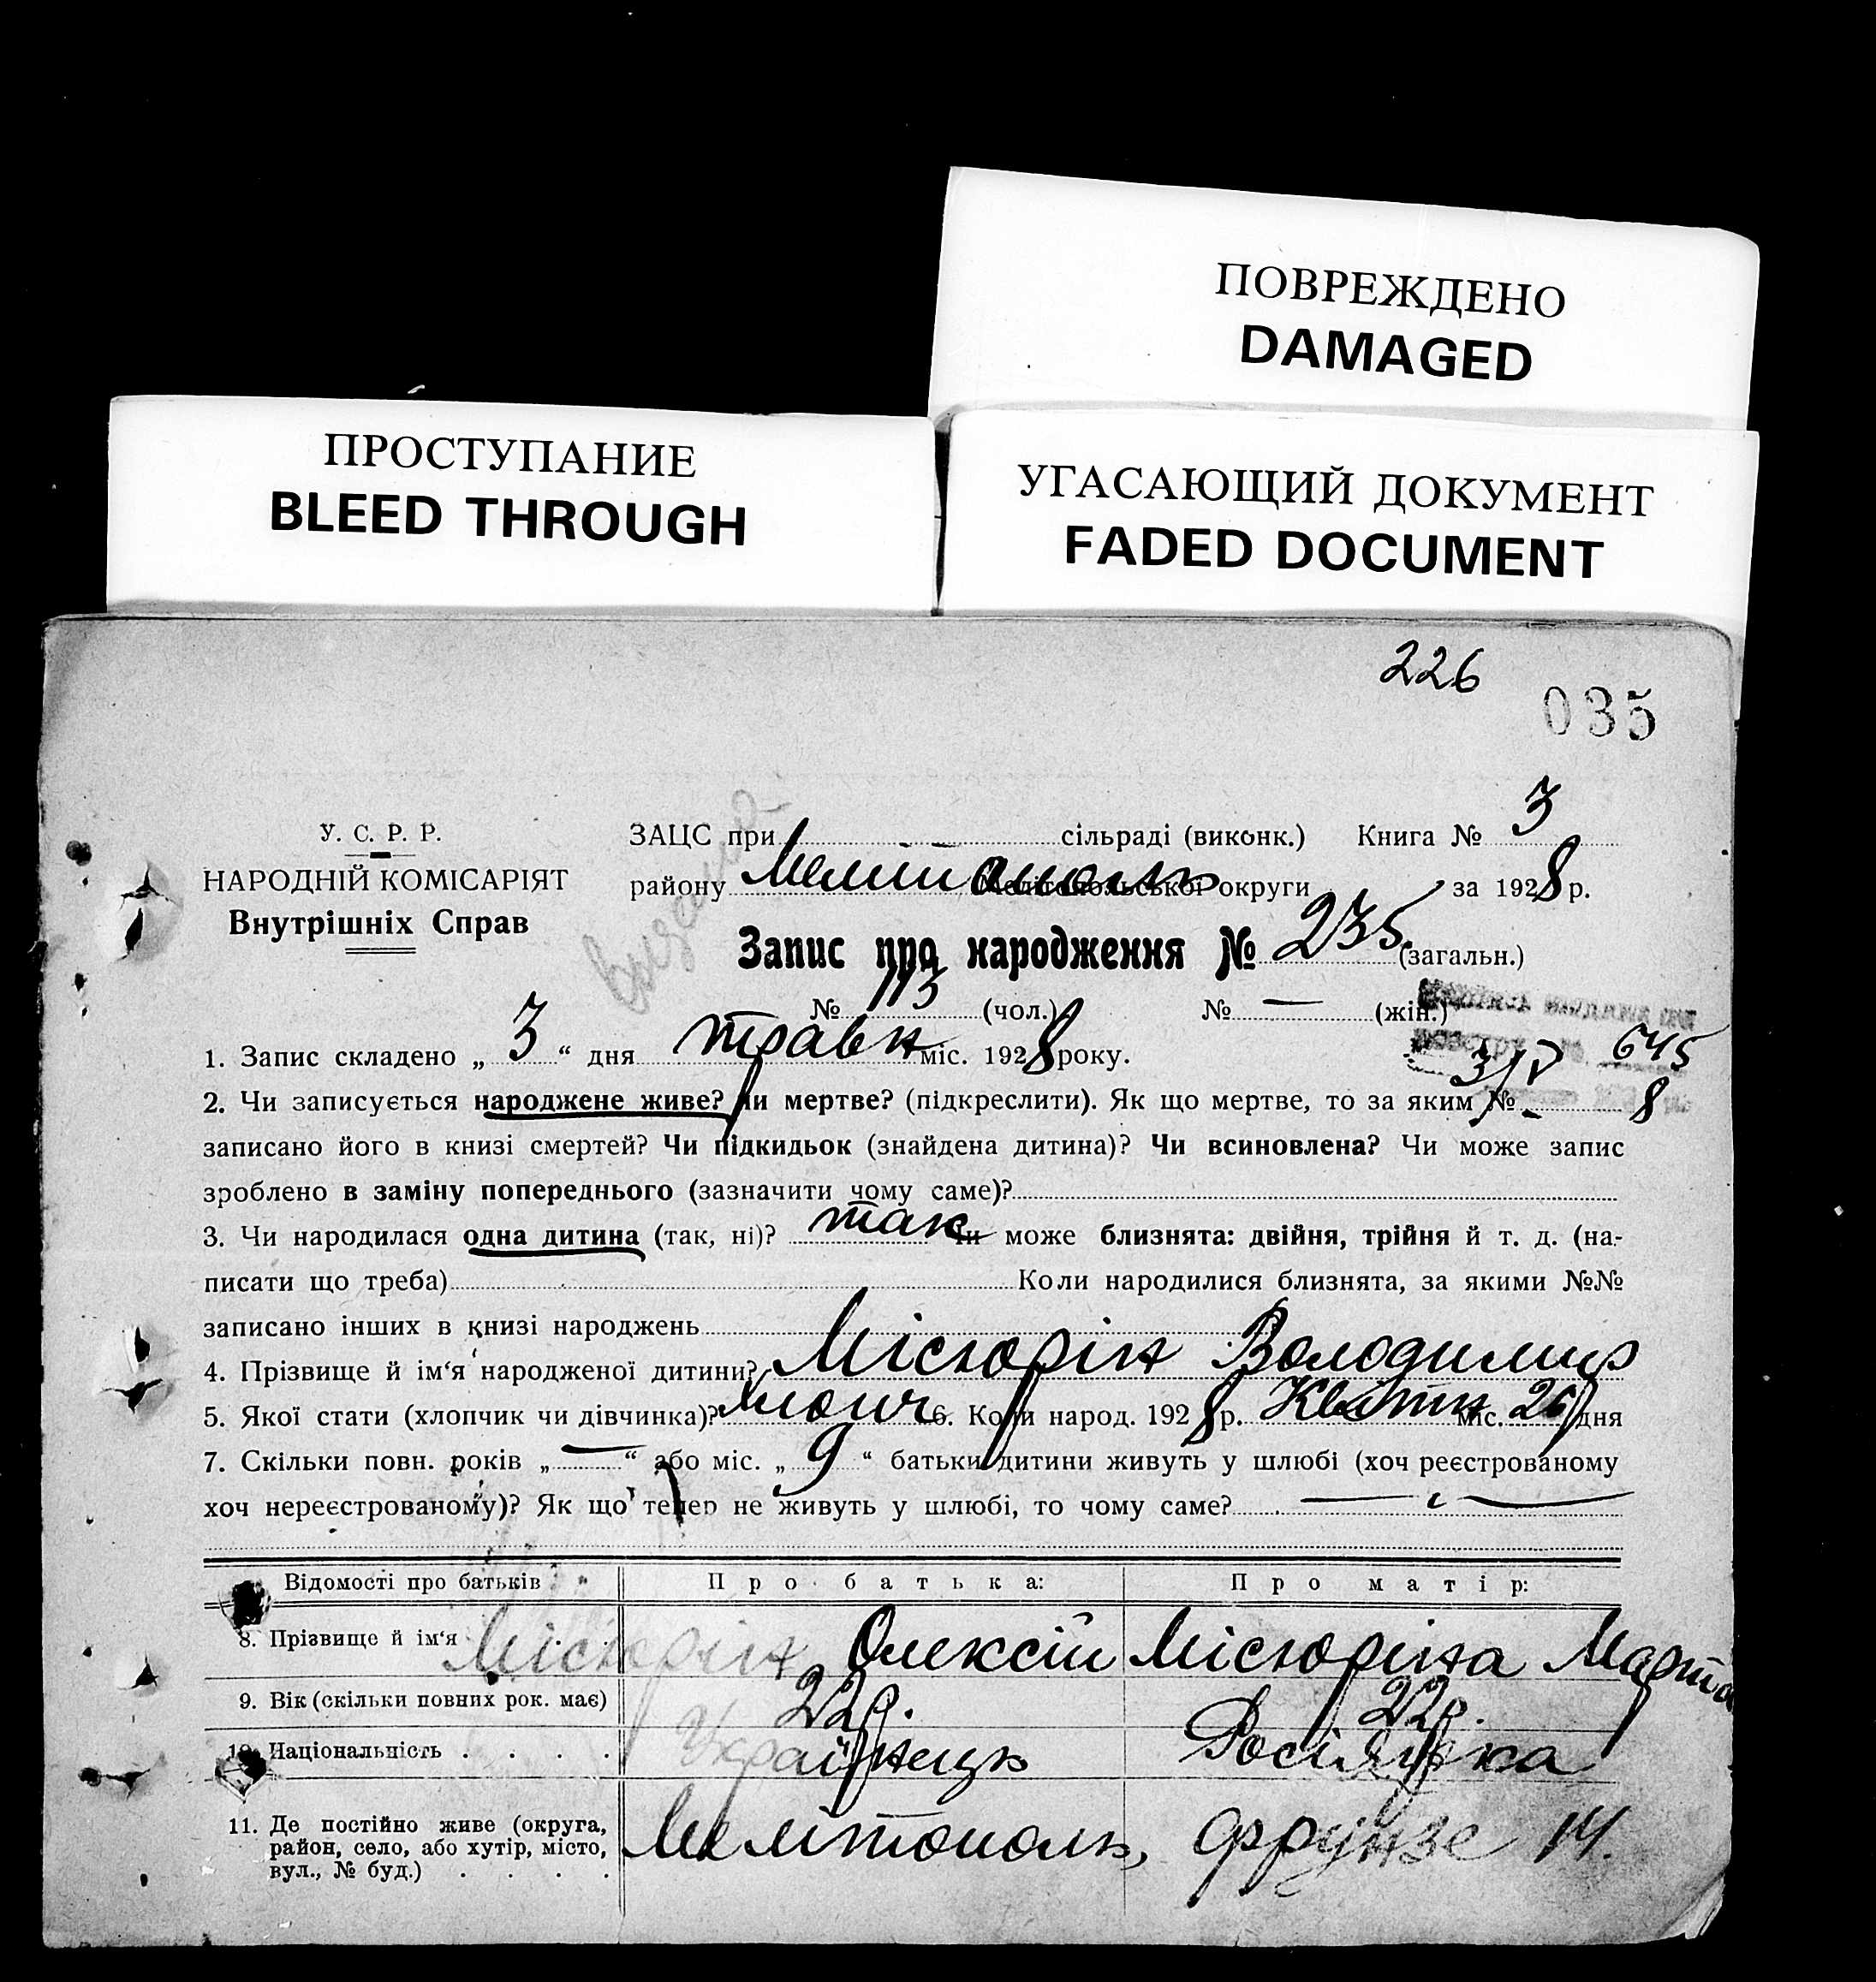 ПОВРЕЖДЕНО
DAMAGED
ПРОСТУПАНИЕ
BLEED THROUGH
УГАСАЮЩИЙ ДОКУМЕНТ
FADED DOCUMENT
226
035
У. С. Р. Р.
НАРОДНІЙ КОМІСАРІЯТ
Внутрішніх Справ
ЗАЦС при сільраді (виконк.) Книга № 3
району Мелітополь Мелітопольської округи за 1928 р.
Запис про народження № 235 (загальн.)
№ 113 (чол.) № — (жін.)
645
3/V
8
1. Запис складено „ 3 “ дня травн міс. 1928 року.
2. Чи записується народжене живе? Чи мертве? (підкреслити). Як що мертве, то за яким №
записано його в книзі смертей? Чи підкидьок (знайдена дитина)? Чи всиновлена? Чи може запис
зроблено в заміну попереднього (зазначити чому саме)?
3. Чи народилася одна дитина (так, ні)? так Чи може близнята: двійня, трійня й т. д. (на-
писати що треба) Коли народилися близнята, за якими №№
записано інших в книзі народжень
4. Прізвище й ім‘я народженої дитини? Місюрін Володимир
5. Якої стати (хлопчик чи дівчинка)? хлопч 6. Коли народ. 1928 р. Квітн міс. 26 дня
7. Скільки повн. років „ — “ або міс. „ 9 “ батьки дитини живуть у шлюбі (хоч реєстрованому
хоч нереєстрованому)? Як що тепер не живуть у шлюбі, то чому саме?
Відомості про батьків Про батька: Про матір:
8. Прізвище й ім‘я Місюрін Олексій Місюріна Марта
9. Вік (скільки повних рок. має) 22р. 22р.
10. Національність Українець Росіянка
11. Де постійно живе (округа,
район, село, або хутір, місто,
вул., № буд.) Мелітополь, Фрунзе 14.